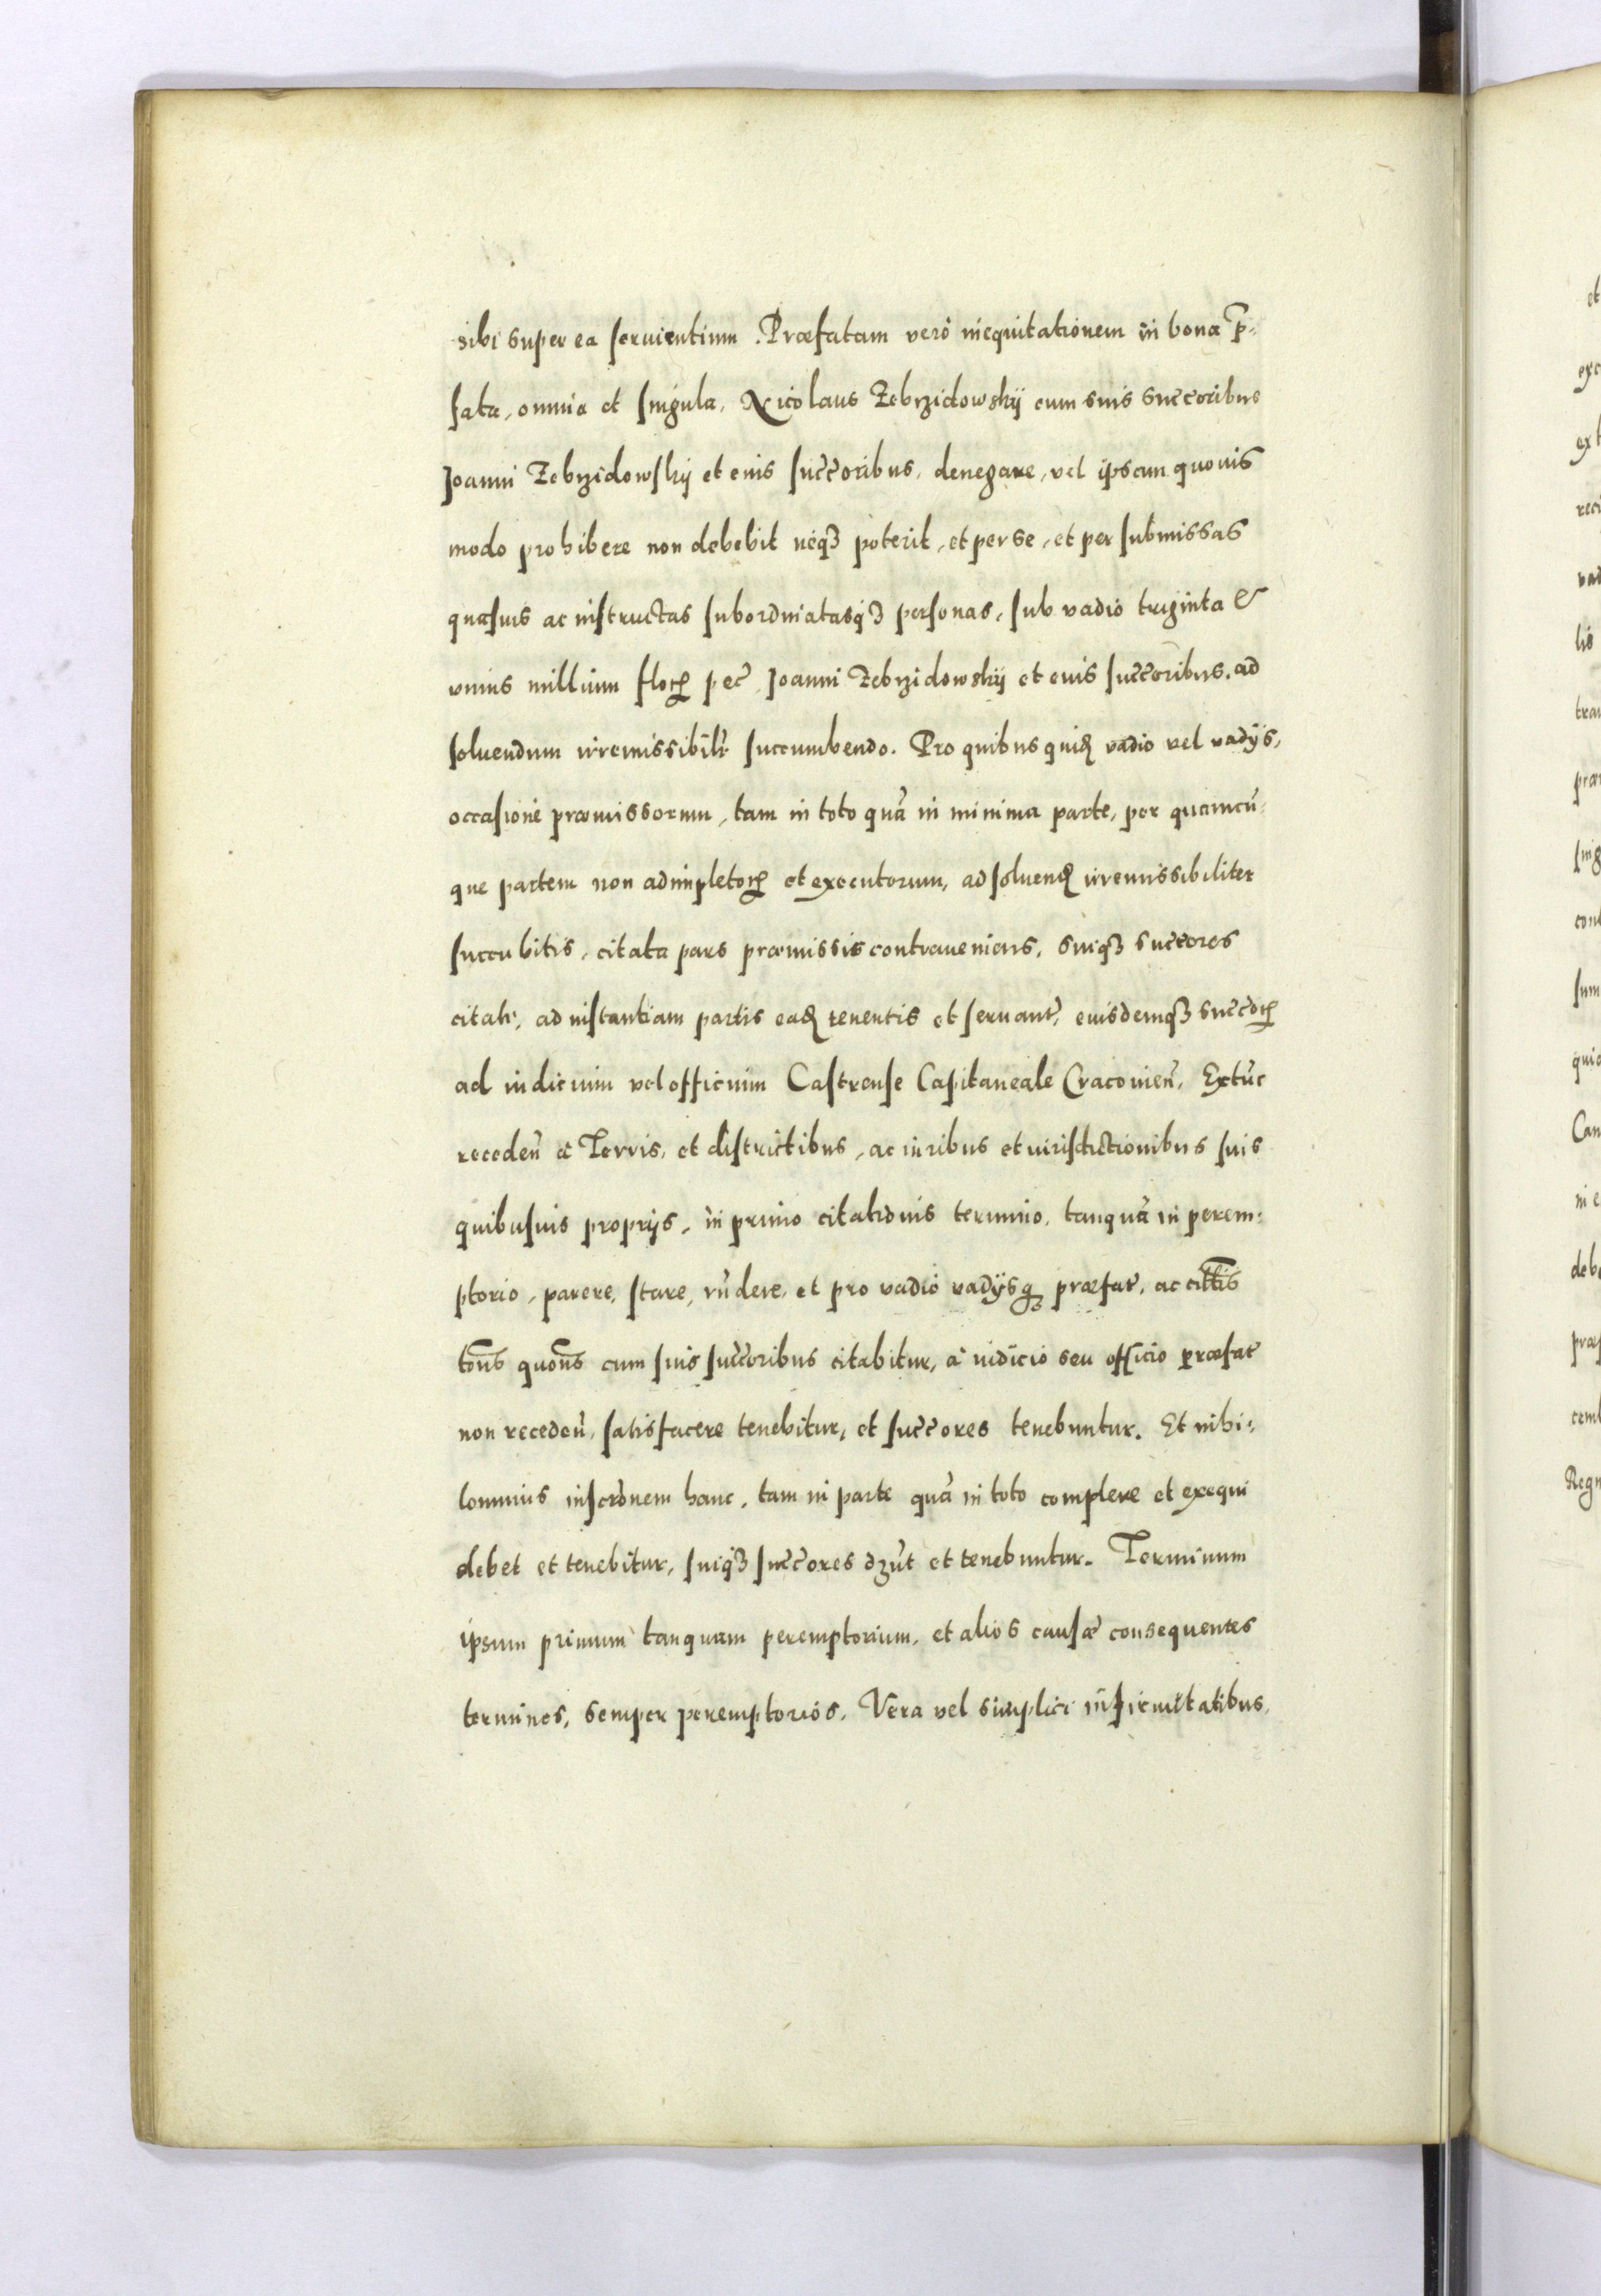 sibi super ea seruientium. Præfatam verò inequitationem in bona p̄-
fata, omnia et singula, Nicolaus Zebrzidowskÿ cum suis succ̄oribus
Joanni Zebrzidowskÿ et eius succ̄oribus, denegare, vel ipsam quouis
modo prohibere non debebit neqꝫ poterit, et per se, et per submissas
quasuis ac instructas subordinatasqꝫ personas, sub vadio triginta &
vnius millium floꝝ pec̄ Joanni Zebrzidowskÿ et eius succ̄oribus, ad
soluendum irremissibilr̄ succumbendo. Pro quibus quid vadio vel vadÿs,
occasione præmissorum, tam in toto quā in minima parte, per quamcū-
que partem non adimpletoꝝ et executorum, ad soluend irremissibiliter
succubitis, citata pars præmissis contraueniens, suiqꝫ succ̄ores
citati, ad instantiam partis ead tenentis et seruant̄, eiusdemqꝫ succ̄oꝝ
ad iudicium vel officium Castrense Capitaneale Cracouien̄, Extūc
receden̄ à Terris, et districtibus, ac iuribus et iurisdictionibus suis
quibusuis proprÿs, in primo citationis termino, tanquā in perem:
ptorio, parere, stare, rn̄dere, et pro vadio vadÿsqꝫ præfat̄, ac citt̄is
tōns quōns cum suis succ̄oribus citabitur, à iudicio seu officio præfat̄
non receden̄, satisfacere tenebitur, et succ̄ores tenebuntur. Et nihi:
lominus inscr̄onem hanc, tam in parte quā in toto complere et exequi
debet et tenebitur, suiqꝫ succ̄ores dꝫūt et tenebuntur. Terminum
ipsum primum tanquam peremptorium, et alios causæ consequentes
terminos, semper peremptorios, Vera vel simplici infirmitatibus,